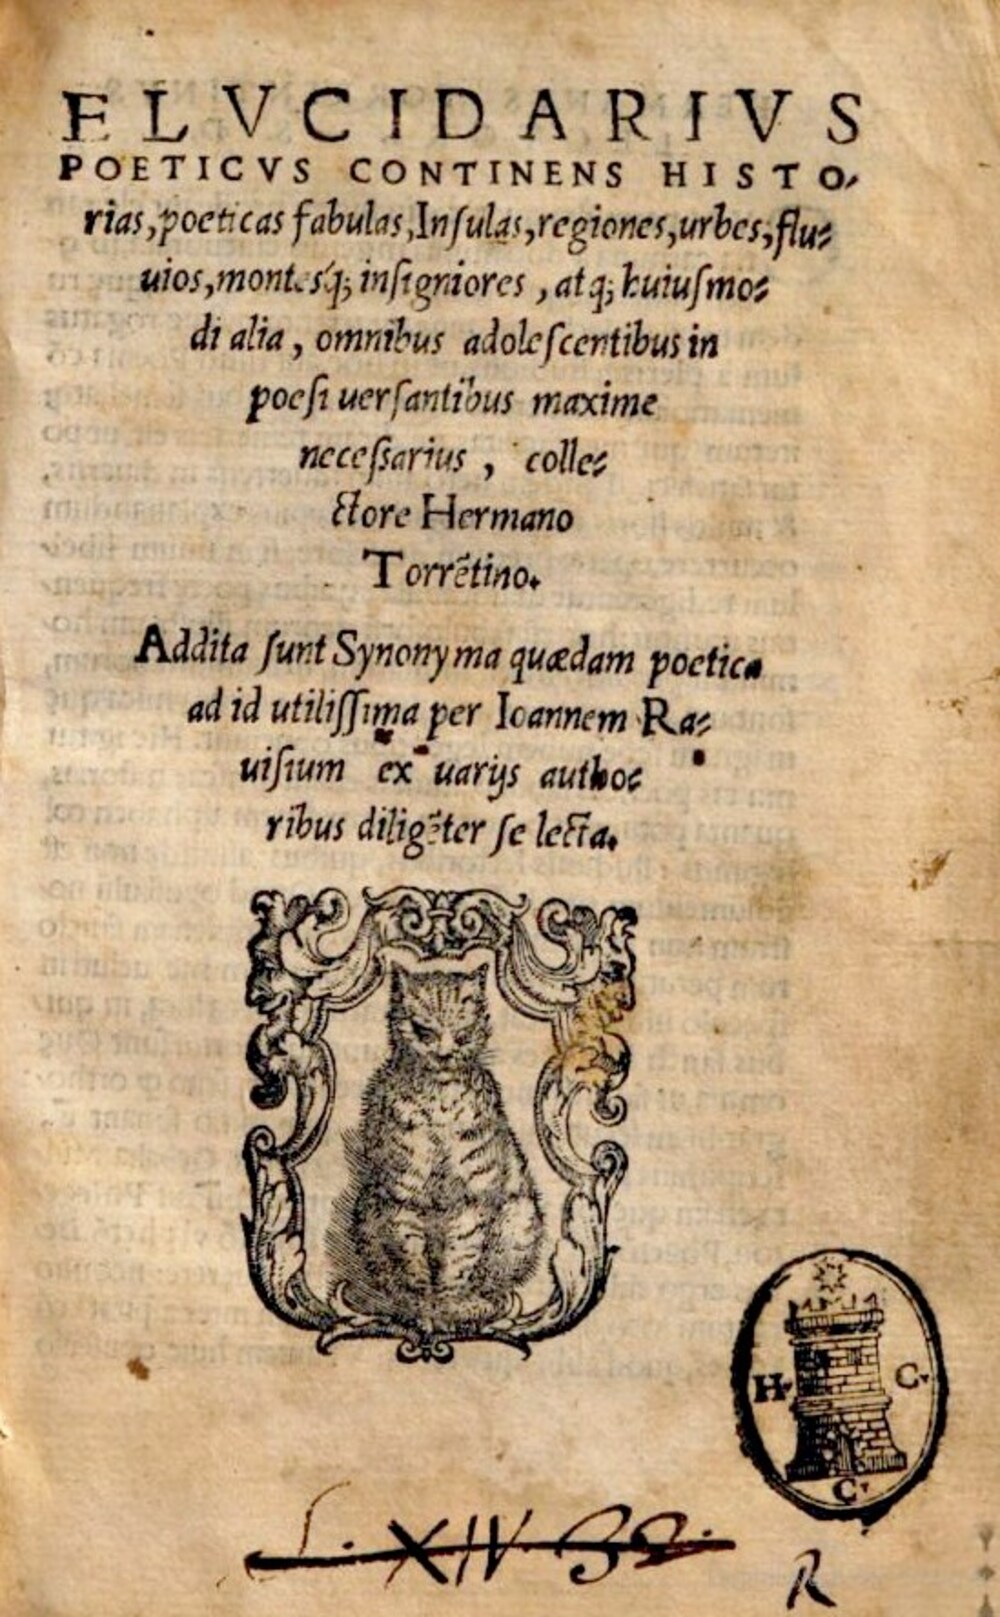 ELVCIDARIVS
POETICVS CONTINENS HISTO-
rias, poeticas fabulas, Inſulas, regiones, urbes, flu-
uios, montesq́; inſigniores, atq; huiuſmo-
di alia, omnibus adoleſcentibus in
poeſi uerſantibus maxime
neceſſarius, colle-
ctore Hermano
Torrẽtino.
Addita ſunt Synonyma quædam poetica
ad id utiliſſima per Ioannem Ra-
uiſium ex uarijs autho-
ribus diligẽter ſelecta.
H. C.
C.
L. XIV. 32.
R